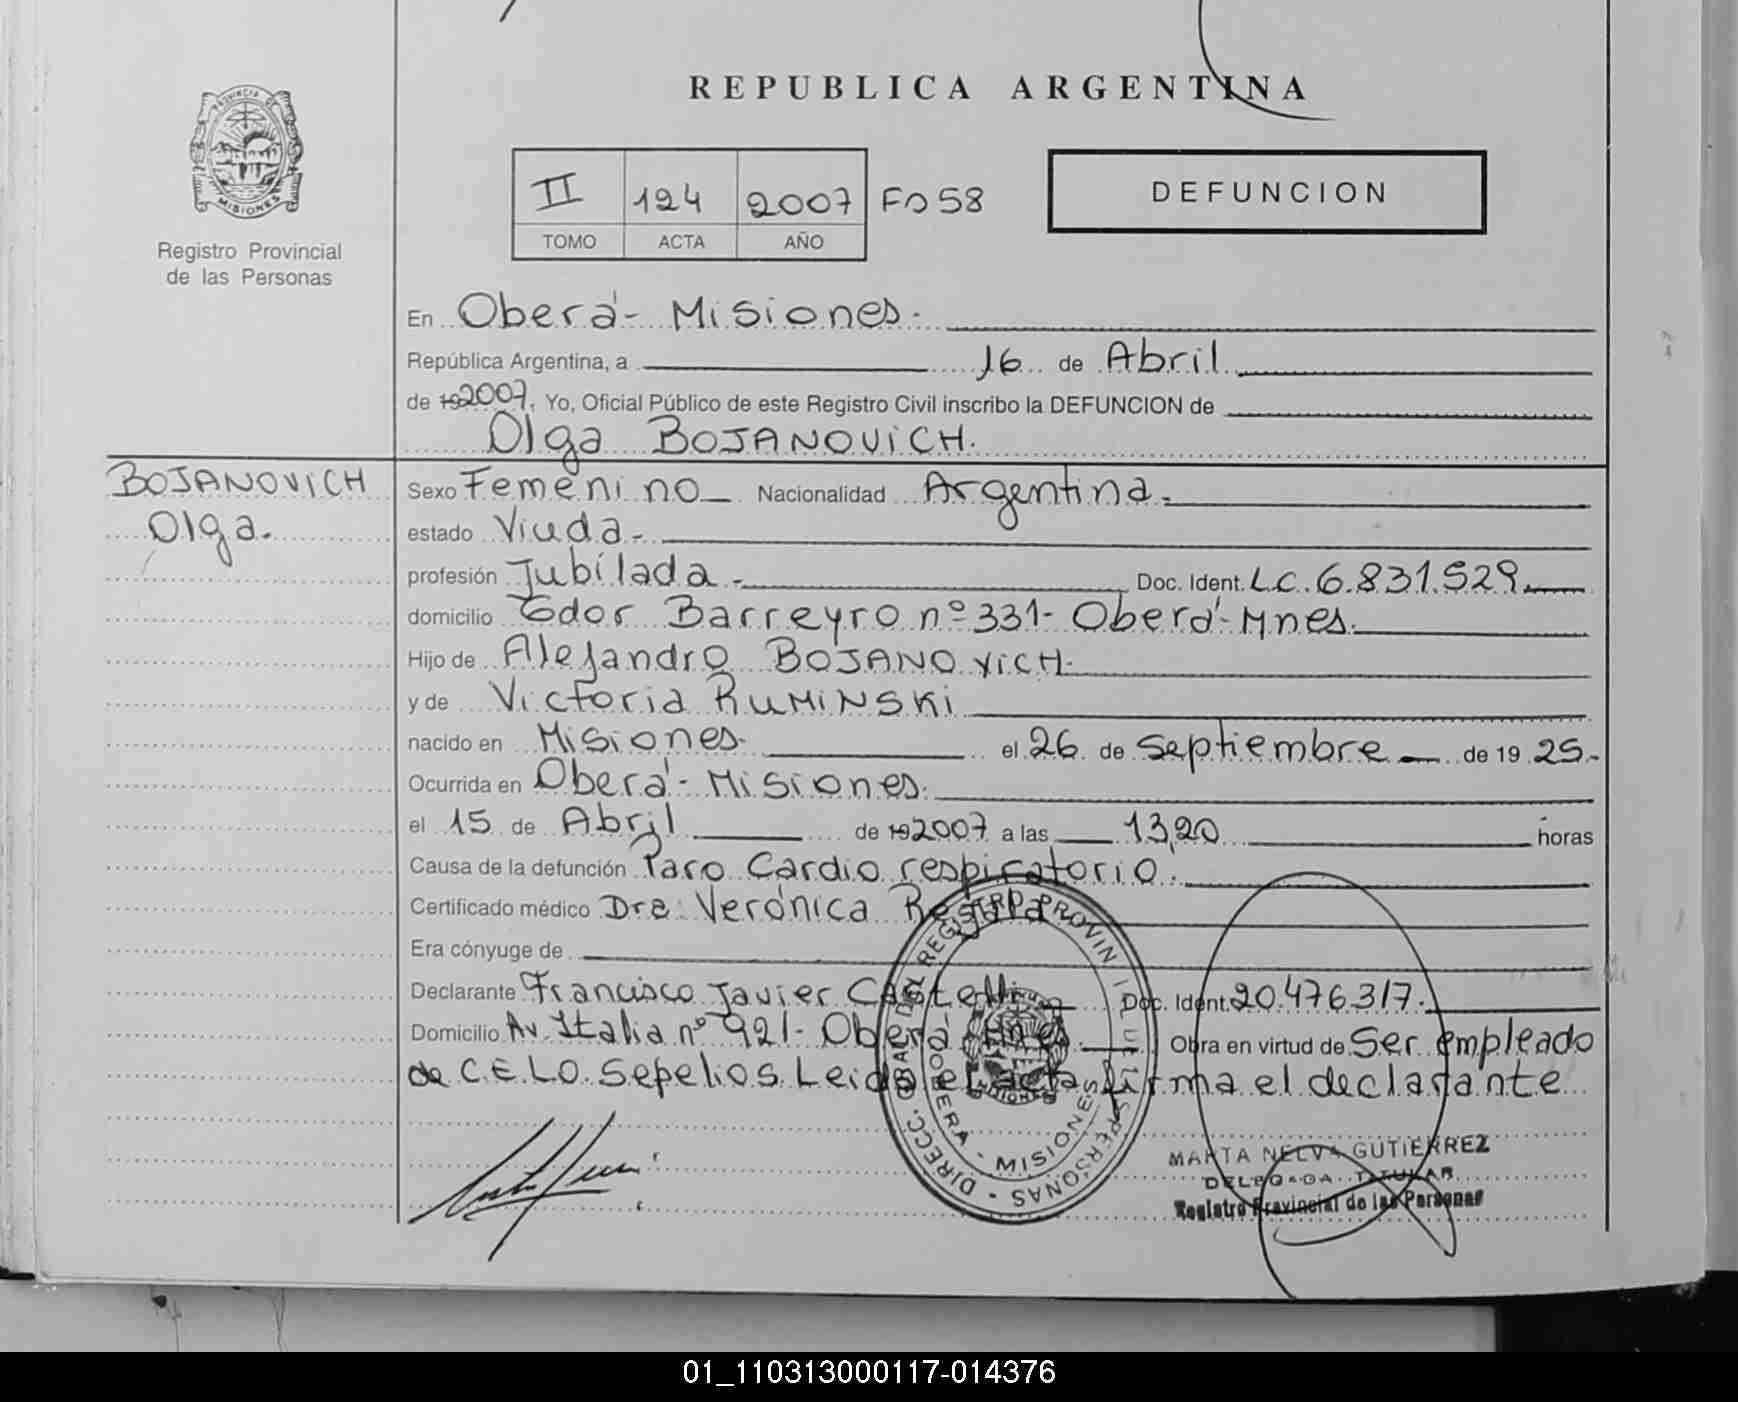 REPUBLICA ARGENTINA
PROVINCIA DE
MISIONES
Registro Provincial
de las Personas
II 124 2007 Fo 58
TOMO ACTA AÑO
DEFUNCION
En Oberá - Misiones.
República Argentina, a 16 de Abril
de 192007, Yo, Oficial Público de este Registro Civil inscribo la DEFUNCION de
Olga BOJANOVICH.
BOJANOVICH
Olga.
Sexo Femenino Nacionalidad Argentina.
estado Viuda.-
profesión Jubilada.- Doc. Ident. L.C. 6.831.529
domicilio Barreyro nº 331- Oberá- Mnes.
Hijo de Alejandro BOJANOVICH.
y de Victoria RUMINSKI
nacido en Misiones- el 26 de Septiembre de 19 25.-
Ocurrida en Oberá - Misiones.
el 15 de Abril de 192007 a las 13,20 horas
Causa de la defunción Paro Cardio respiratorio.
Certificado médico Dra. Verónica
Era cónyuge de
Declarante Francisco Javier Castelli Doc. Ident. 20.476.317.
Domicilio Av. Italia nº 921- Oberá Mnes. Obra en virtud de Ser empleado
de C.E.L.O. Sepelios. Leida el acta firma el declarante
DIRECC. GRAL. DEL REGISTRO PROVIN DE LAS PERSONAS
OBERA - MISIONES
MARTA NELVA GUTIERREZ
DELEGADA TITULAR
Registro Provincial de las Personas
01_110313000117-014376